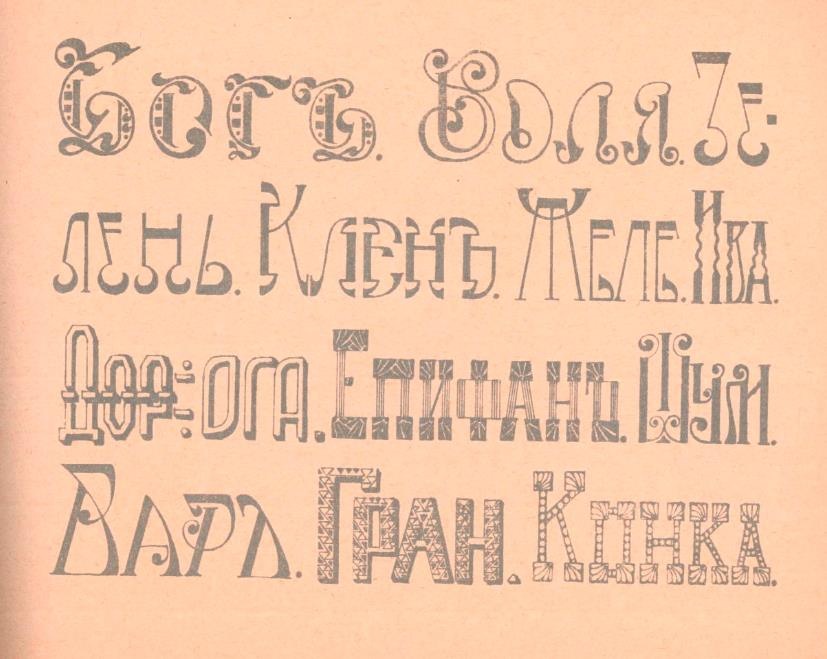 Богъ. Воля. Зе-
лень. Клѥнъ. Желе. Ива.
Дор:ога. Епифанъ. Шум.
Гран. Конка.